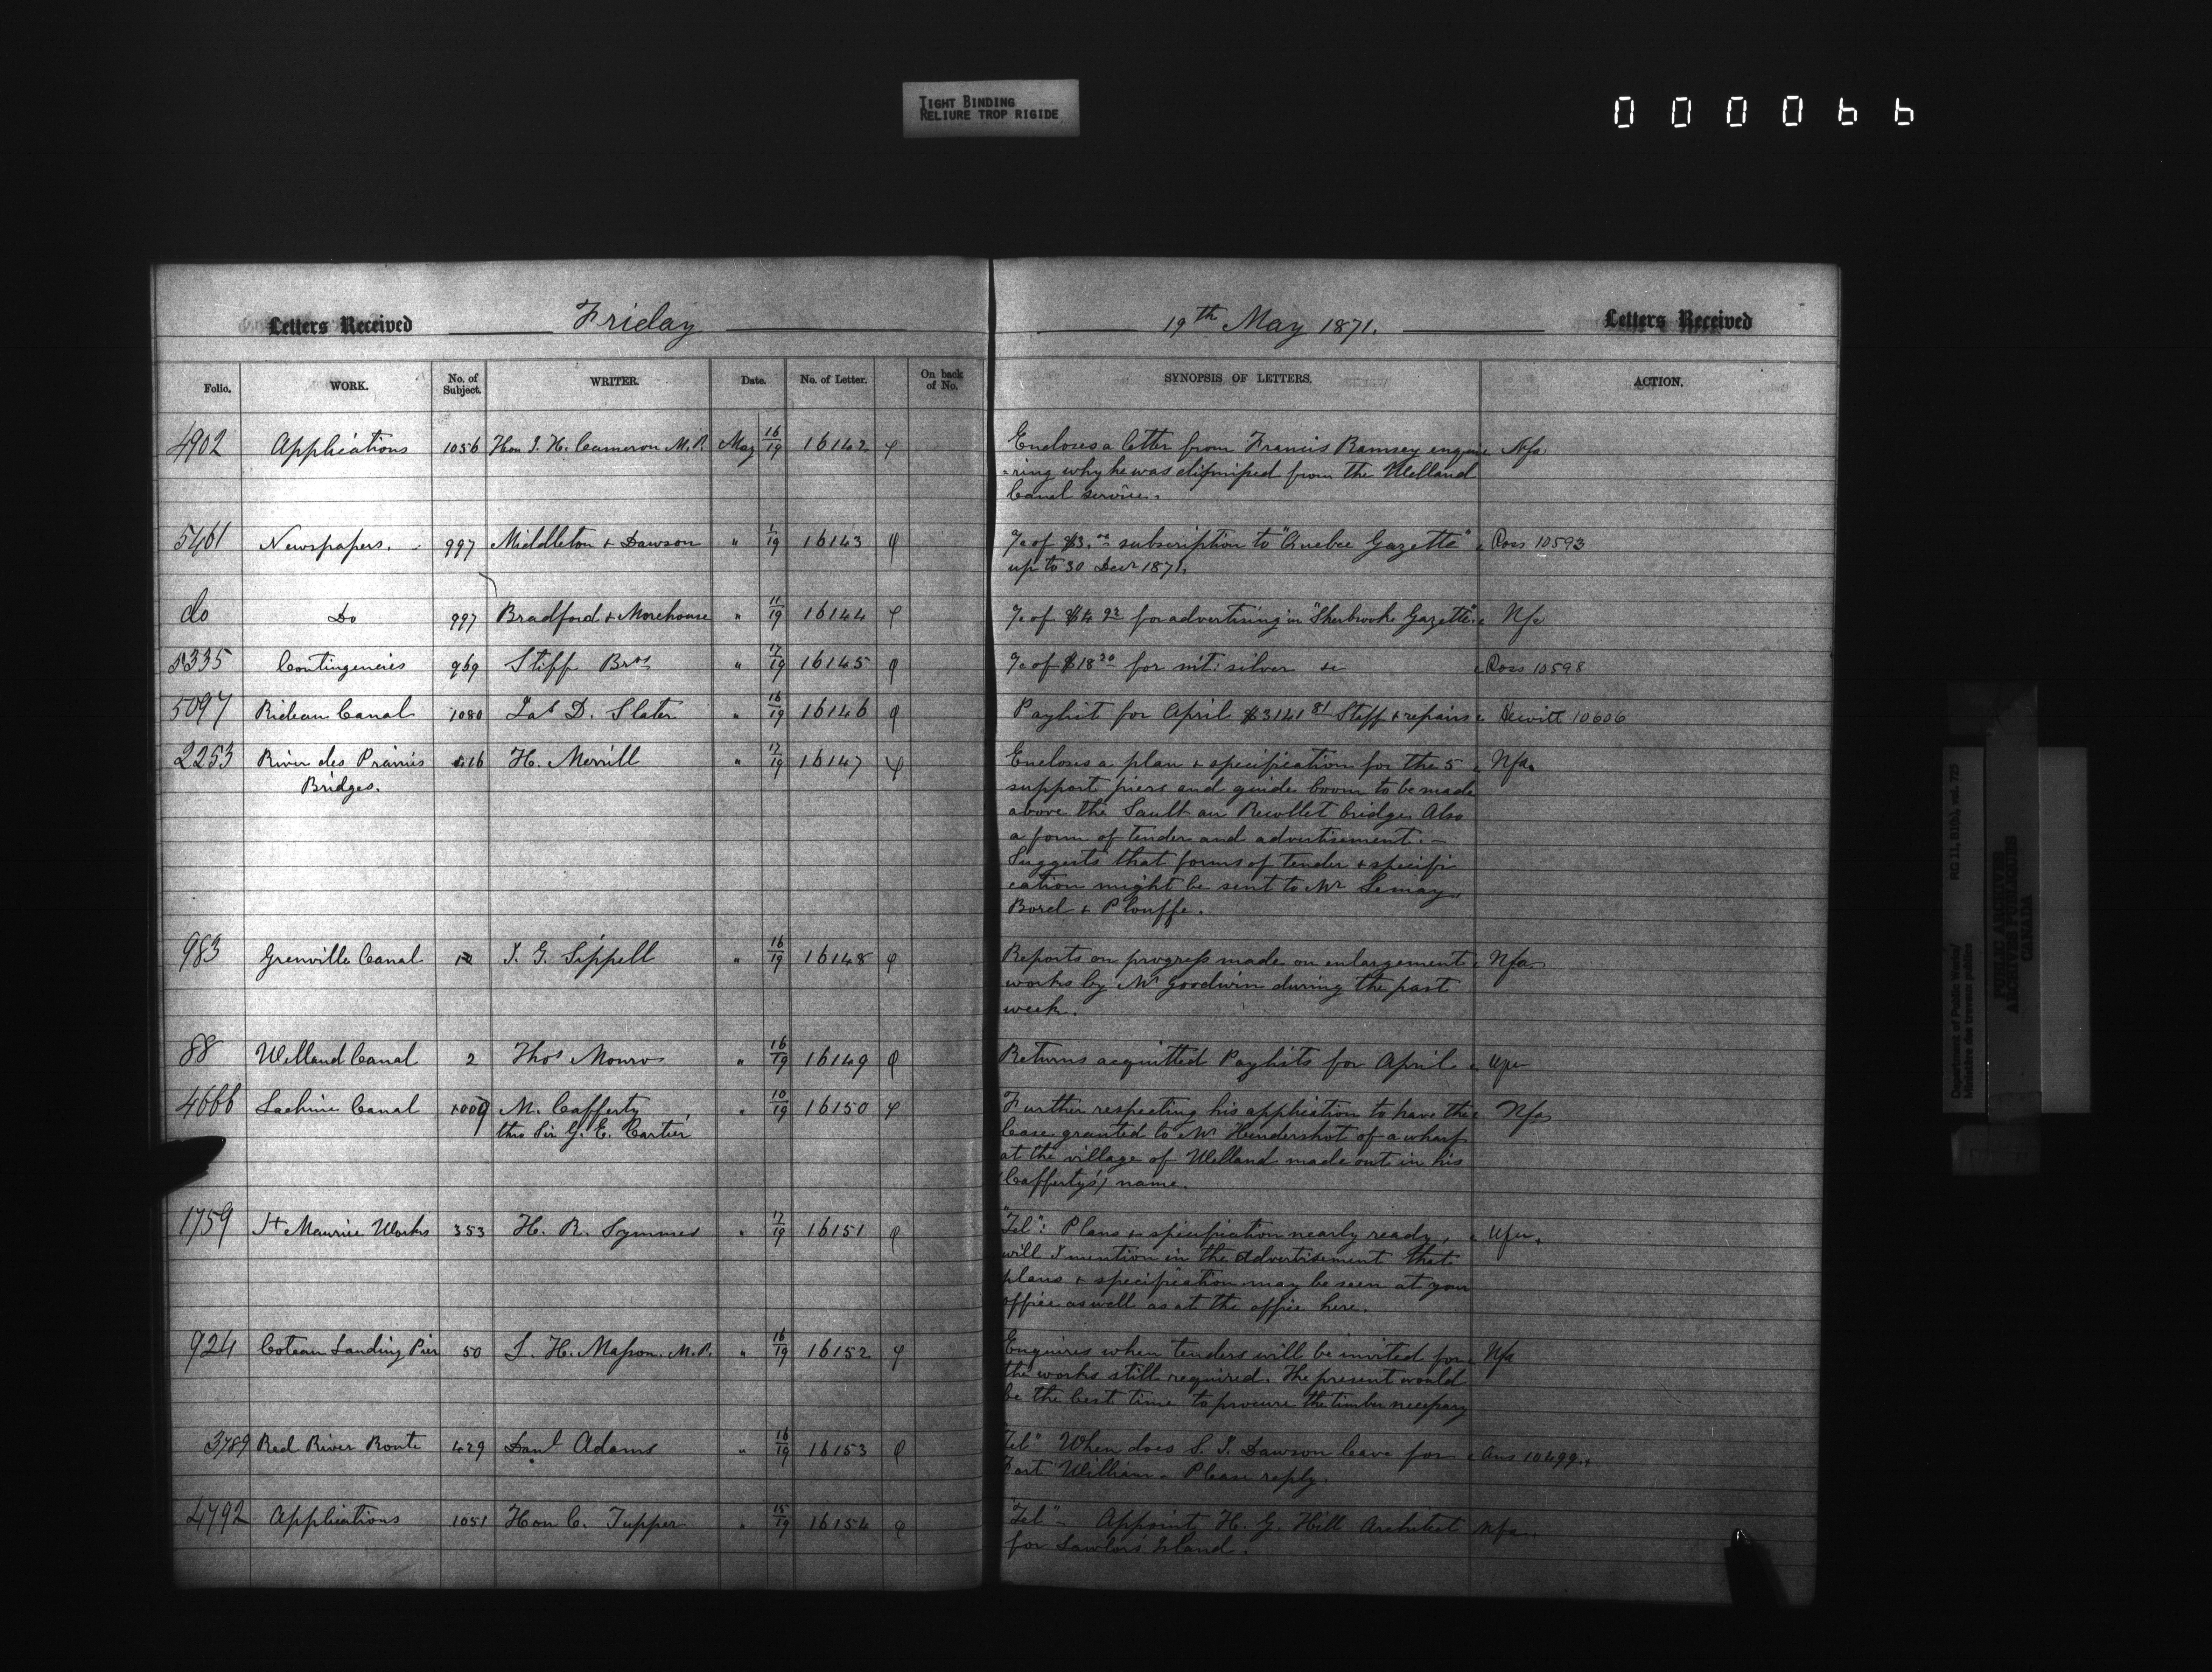 TIGHT BINDING
RELIURE TROP RIGIDE
000066
Letters Received Friday 19th May 1871. Letters Received
Folio. WORK. No. of Subject. WRITER. Date. No. of Letter. On back of No. SYNOPSIS OF LETTERS. ACTION.
4902 Applications 1056 Hon J. H. Cameron M.P. May 16/19 16142 Encloses a letter from Francis Ramsey enqui Nfa
-ring why he was dismissed from the Welland
Canal service.
5461 Newspapers. 997 Middleton & Dawson " 1/19 16143 of $3.00 subscription to "Quebec Gazette" Ross 10593
up to 30 Decr 1871.
do Do 997 Bradford & Morehouse " 11/19 16144 of $4 92 for advertising in "Sherbrooke Gazette" Nfa
5335 Contingencies 969 Stiff Bros " 17/19 16145 of $18 20 for nit: silver &c Ross 10598
5097 Rideau Canal 1080 Jas D. Slater " 16/19 16146 Paylist for April $3141 81 Staff & repairs Hewitt 10606
2253 River des Prairies 416 H. Merrill " 17/19 16147 Encloses a plan & specification for the 5 Nfa.
Bridges. support piers and guide boom to be made
above the Sault au Recollet bridge. Also
a form of tender and advertisement. -
Suggests that forms of tender & specifi
cation might be sent to Mr Lemay,
Borel & Plouffe.
983 Grenville Canal 12 J. G. Sippell " 16/19 16148 Reports on progress made on enlargement Nfa
works by Mr Goodwin during the past
week.
88 Welland Canal 2 Thos Monro " 16/19 16149 Returns acquitted Paylists for April
4666 Lachine Canal 1009 M. Cafferty " 10/19 16150 Further respecting his application to have the Nfa
thro Sir G. E. Cartier lease granted to Mr Hendershot of a wharf
at the village of Welland made out in his
(Cafferty's) name.
1759 St Maurice Works 353 H. R. Symmes " 17/19 16151 "Tel": Plans & specification nearly ready,
will I mention in the advertisement that
plans & specification may be seen at your
office as well as at the office here.
924 Coteau Landing Pier 50 L. H. Masson. M.P. " 16/19 16152 Enquires when tenders will be invited for Nfa
the works still required. The present would
be the best time to procure the timber necessary
3789 Red River Route 429 Danl Adams " 16/19 16153 Tel" When does S. J. Dawson leave for Ans 10499
Fort William - Please reply.
4792 Applications 1051 Hon C. Tupper " 15/19 16154 "Tel" - Appoint H. G. Hill Architect Nfa
for Lawlors Island.
Department of Public Works/
Ministère des travaux publics
RG 11, B1(b), vol. 725
PUBLIC ARCHIVES
ARCHIVES PUBLIQUES
CANADA